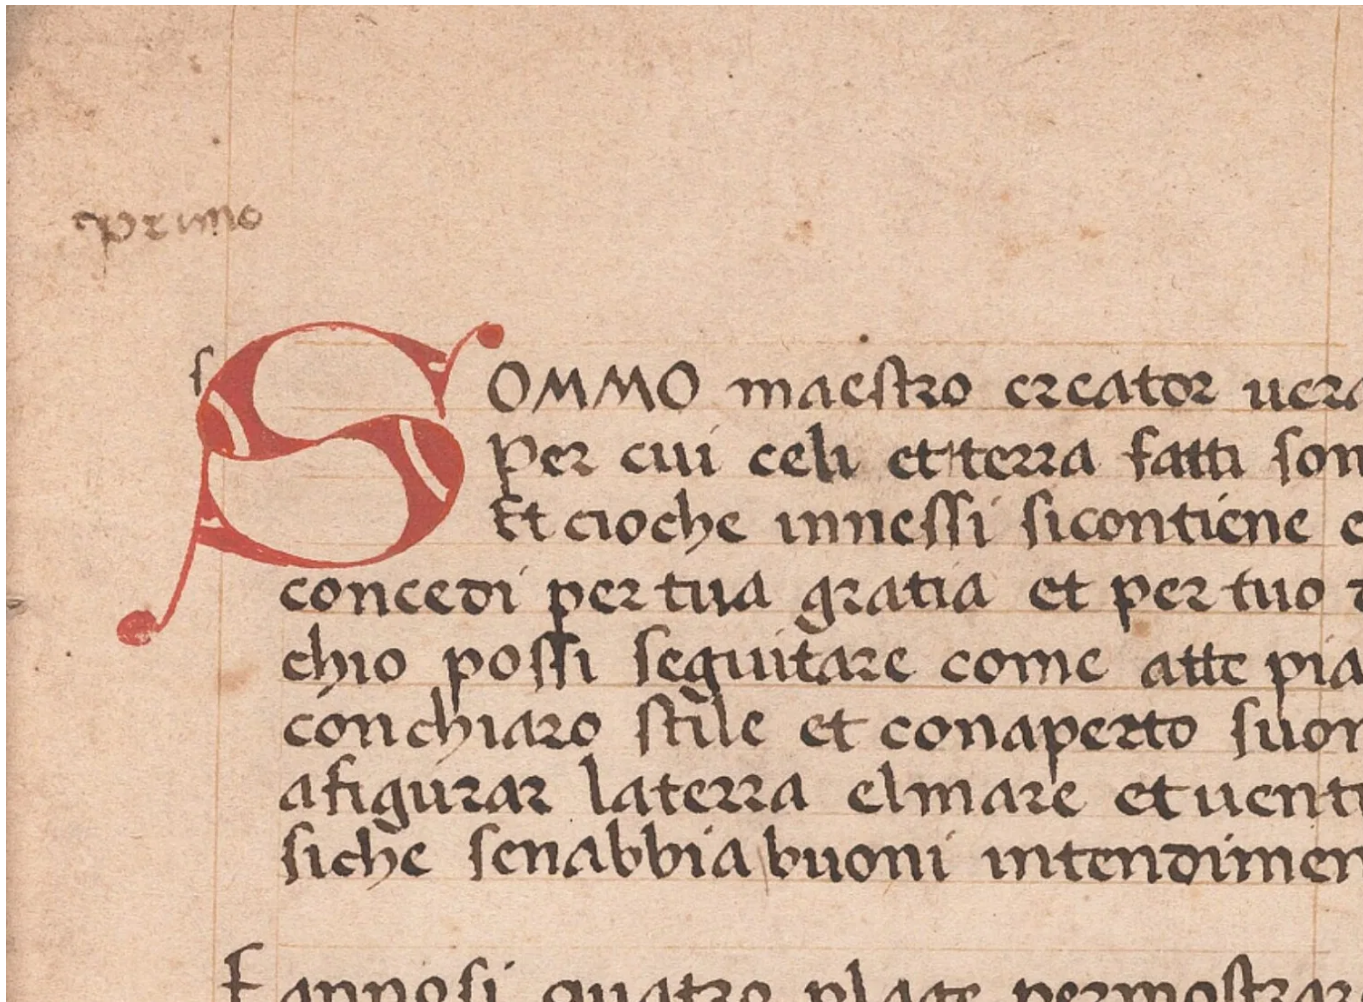 primo
s
SOMMO maestro creator uera
per cui celi et terra fatti son
Et cioche innessi sicontiene e
concedi per tua gratia et per tuo
chio possi seguitare come atte pia
con chiaro stile et conaperto suon
afigurar laterra elmare et uent
siche senabbia buoni intendimen
Fannosi quatro plage permostrar